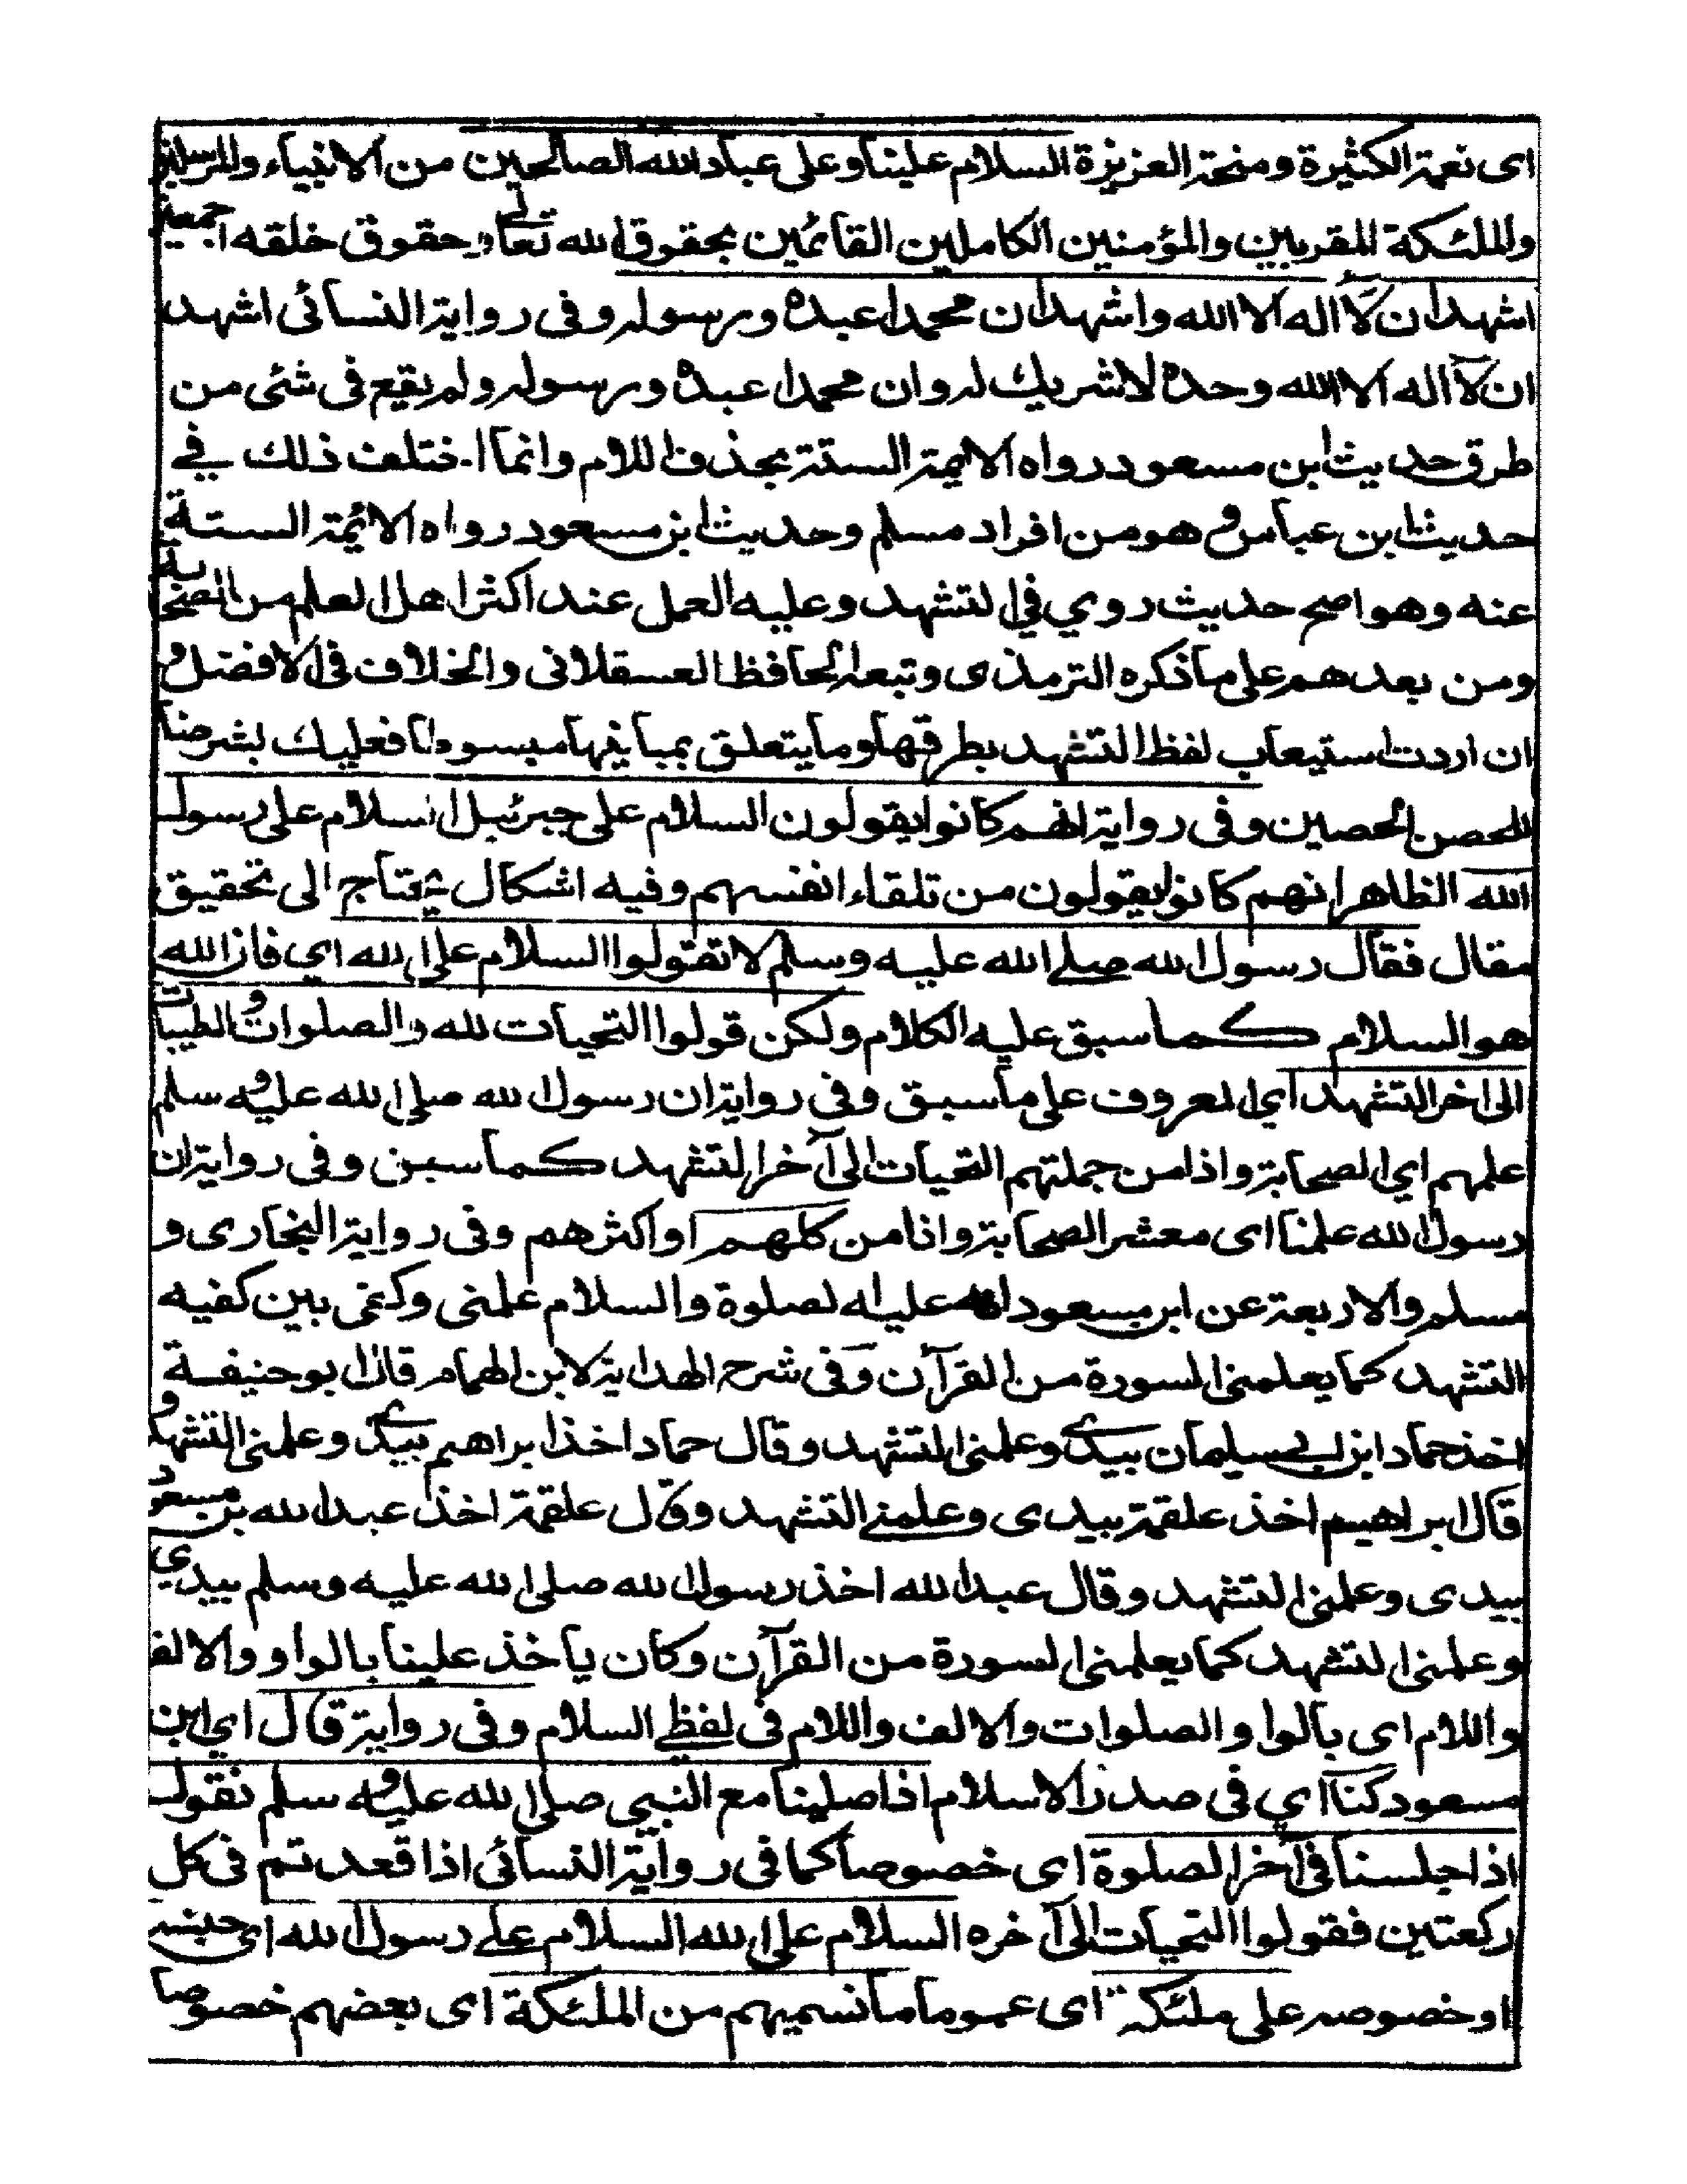 اى نعمة الكثيرة ومنحة العزيزة السلام علينا وعلى عباد الله الصالحين من الانبياء والمرسلين
والملئكة المقربين والمؤمنين الكاملين القائمين بحقوق الله تعالى وحقوق خلقه اجمعين
اشهد ان لآ اله الا الله واشهد ان محمدا عبده ورسوله وفى رواية النسائى اشهد
ان لآ اله الا الله وحده لا شريك له وان محمدا عبده ورسوله ولم يقع فى شئى من
طرق حديث ابن مسعود رواه الايمة الستة بحذف اللام وانما اختلف ذلك في
حديث ابن عباس وهو من افراد مسلم وحديث ابن مسعود رواه الائمة الستة
عنه وهو اصح حديث روي في التشهد وعليه العمل عند اكثر اهل العلم من الصحابة
ومن بعدهم على ما ذكره الترمذى وتبعه الحافظ العسقلانى والخلاف فى الافضل و
ان اردت استيعاب لفظ التشهد بطرقها وما يتعلق بمبانيها مبسوطا فعليك بشرحنا
للحصن الحصين وفى رواية انهم كانوا يقولون السلام على جبرئيل السلام على رسول
الله الظاهر انهم كانوا يقولون من تلقاء انفسهم وفيه اشكال يحتاج الى تحقيق
مقال فقال رسول الله صلے الله عليه وسلم لا تقولوا السلام على الله اي فان الله
هو السلام كما سبق عليه الكلام ولكن قولوا التحيات لله والصلوات والطيبات
الى اخر التشهد اي المعروف على ما سبق وفى رواية ان رسول الله صلى الله عليه وسلم
علمهم اي الصحابة واذا من جملتهم التحيات الى آخر التشهد كما سبق وفى رواية ان
رسول الله علمنا اى معشر الصحابة وانا من كلهم او اكثرهم وفى رواية البخارى و
مسلم والاربعة عن ابن مسعود انه عليه الصلوة والسلام علمنى وكفى بين كفيه
التشهد كما يعلمنى السورة من القرآن وفى شرح الهداية لابن الهمام قال ابو حنيفة
اخذ حماد ابن ابي سليمان بيدي وعلمنى التشهد وقال حماد اخذ ابراهيم بيدي وعلمنى التشهد و
قال ابراهيم اخذ علقمة بيدى وعلمنے التشهد وقال علقمة اخذ عبد الله بن مسعود
بيدى وعلمنى التشهد وقال عبد الله اخذ رسول الله صلى الله عليه وسلم بيدي
وعلمنى التشهد كما يعلمنى السورة من القرآن وكان ياخذ علينا بالواو والالف
واللام اى بالواو الصلوات والالف واللام فى لفظے السلام وفى رواية قال اي ابن
مسعود كنا اي فى صدر الاسلام اذا صلينا مع النبي صلى الله عليه وسلم نقول
اذا جلسنا فى آخر الصلوة اى خصوصا كما فى رواية النسائى اذا قعدتم فى كل
ركعتين فقولوا التحيات الى آخره السلام على الله السلام علے رسول الله اى جنسه
او خصوصه على ملئكة اى عموما ما نسميهم من الملئكة اى بعضهم خصوصا